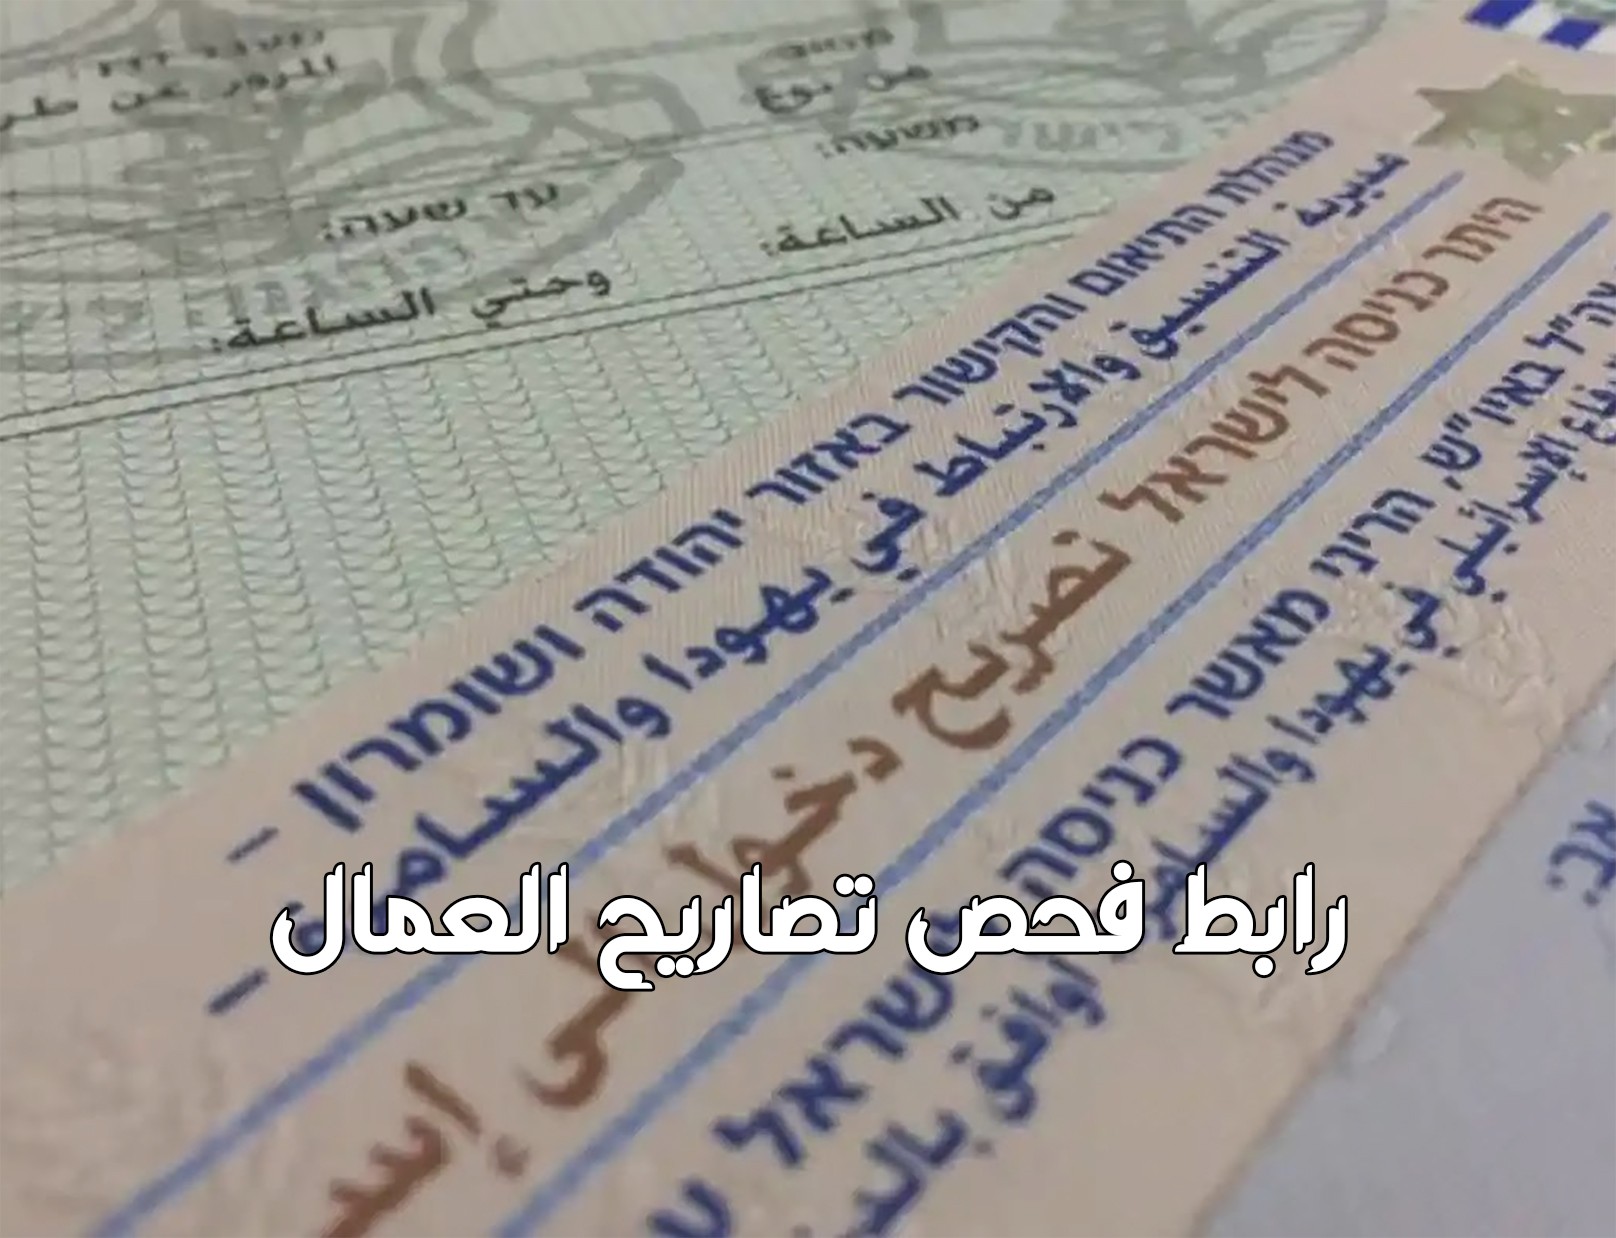 מעבר דרך
المرور عن طر
מסוג
من نوع
משעה:
من الساعة:
עד שעה:
وحتي الساعة:
מנהלת התיאום והקישור באזור יהודה ושומרון -
مديرية التنسيق والارتباط في يهودا والسامرة -
היתר כניסה לישראל تصريح دخول إلى إسر
צה"ל באיו"ש, הריני מאשר כניסה לישראל
الإسرائيلي في يهودا والسامرة اوافق بالد
رابط فحص تصاريح العمال